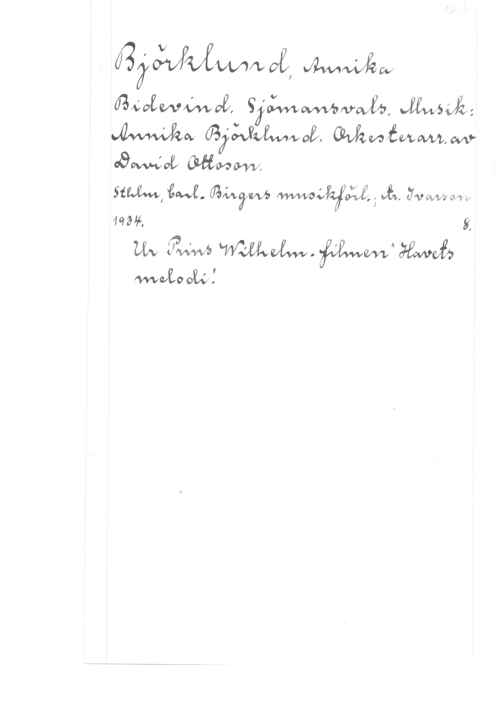 Björklund, Annika
Bidevind. Sjömansvals. Musik:
Annika Björklund. Orkesterarr. av
David Ottoson.
Sthlm, Carl-Birgers musikförl.; tr. Ivarson
1934. 8.
Ur Prins Wilhelm-filmen "Havets
melodi!